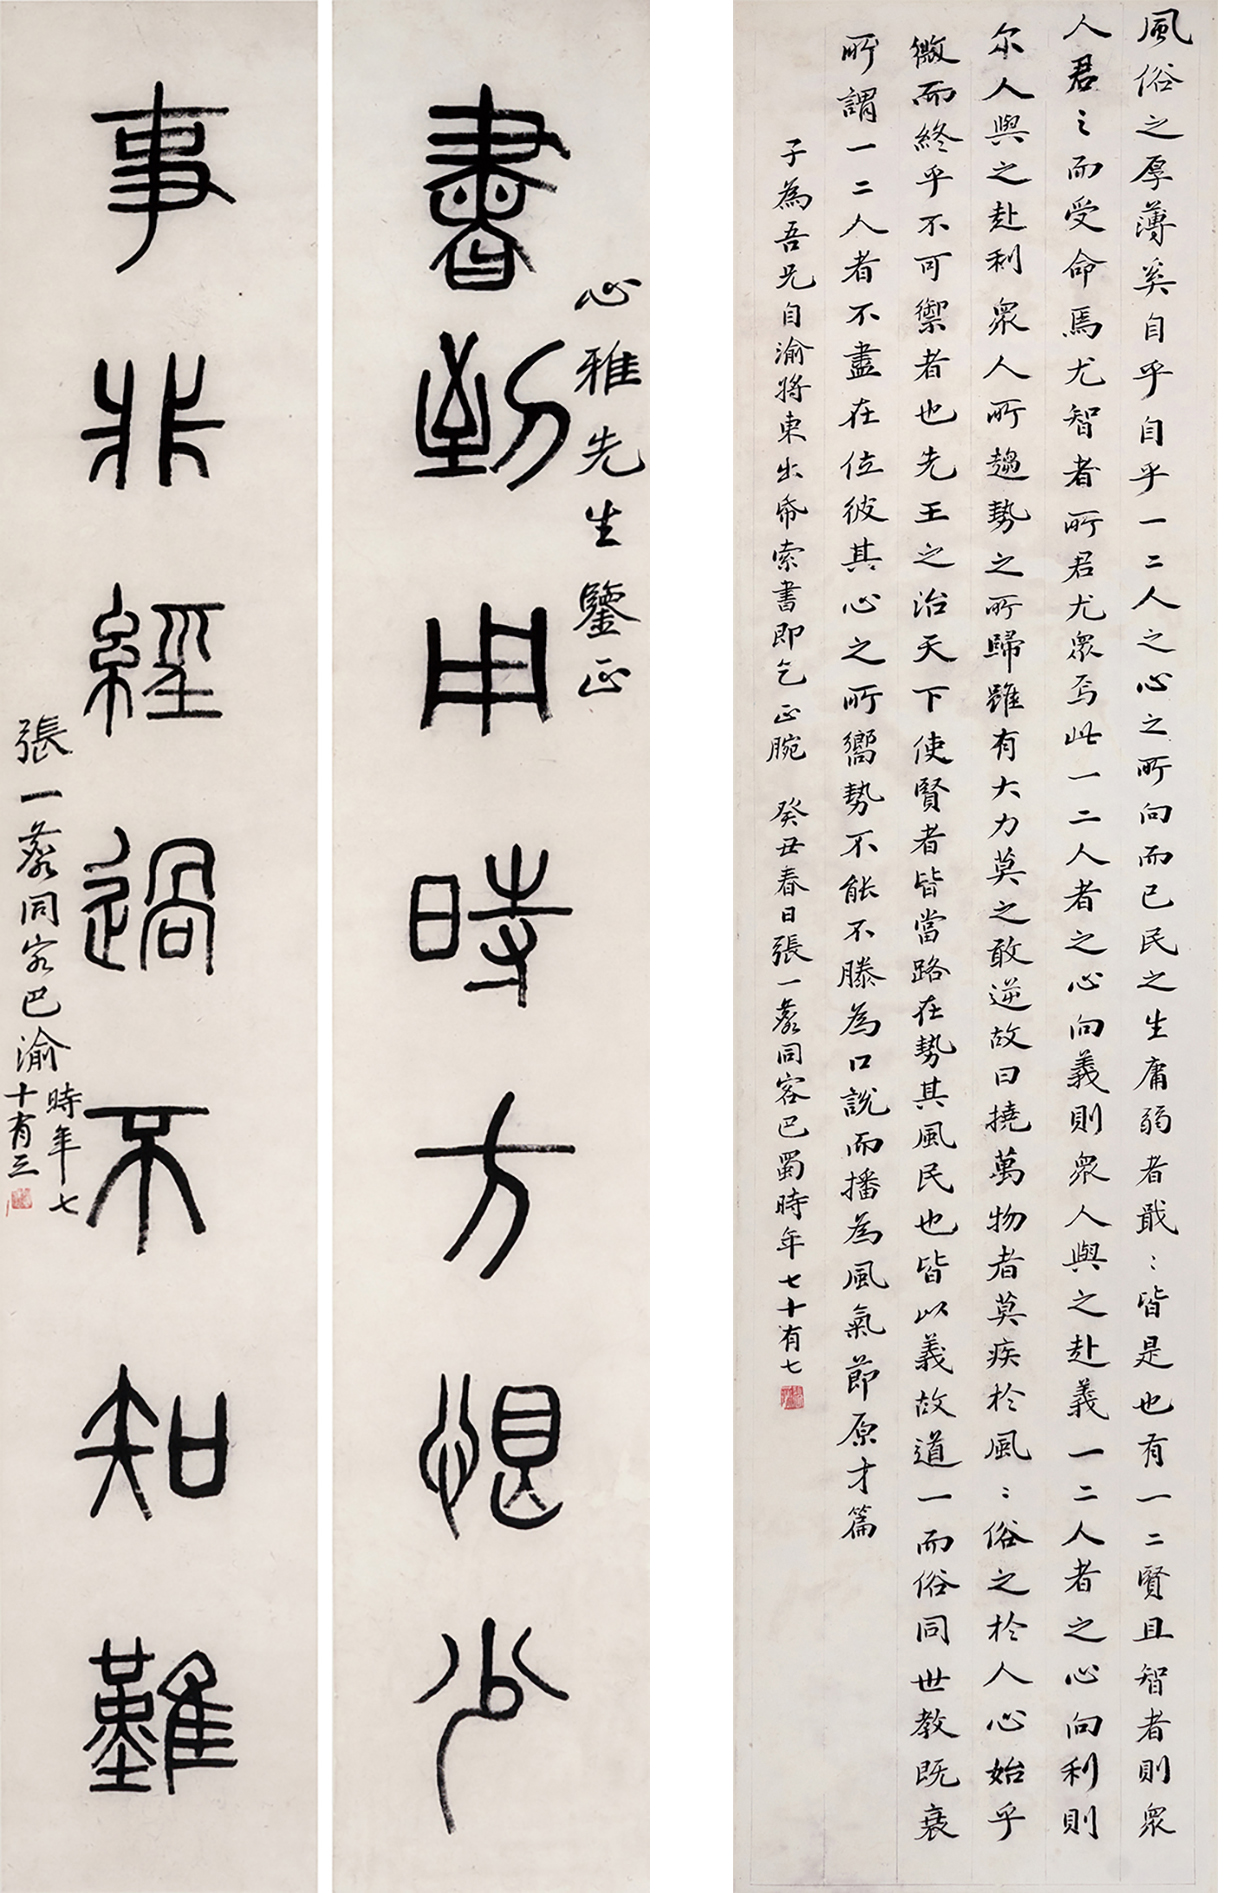 風俗之厚薄奚自乎自乎一二人之心之所向而已民之生庸弱者戢:皆是也有一二賢且智者則眾
人君之而受命焉尤智者所君尤眾焉此一二人者之心向義則眾人與之赴義一二人者之心向利則
尔人與之赴利眾人所趨勢之所歸雖有大力莫之敢逆故曰撓萬物者莫疾於風:俗之於人心始乎
微而終乎不可禦者也先王之治天下使賢者皆當路在勢其風民也皆以義故道一而俗同世教既衰
所謂一二人者不盡在位彼其心之所嚮勢不能不騰為口說而播為風氣節原才篇
子為吾兄自渝將東出帋索書即乞正腕 癸丑春日張一麐同客巴蜀時年七十有七
心雅先生鑒正
書到用時方恨少
事非經過不知難
張一麐同客巴渝
時年七
十有三